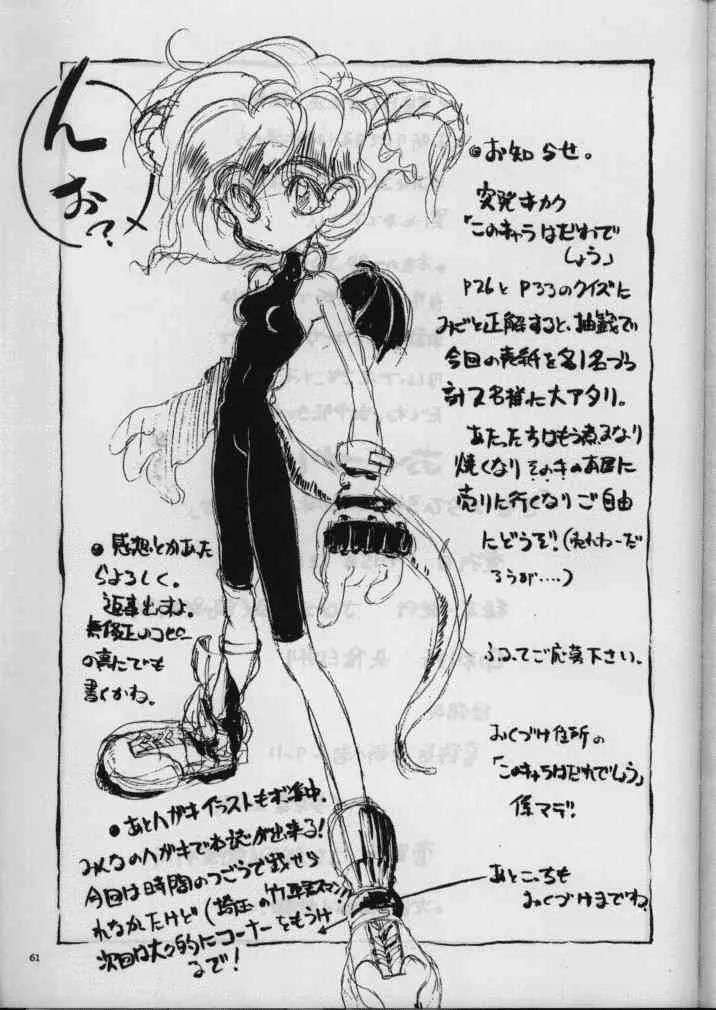 ん
お?
●お知らせ。
突発キカク
「このキャラはだれで
しょう」
P26とP33のクイズに
みごと正解すると、抽籤で
今回の表紙を名1名づつ
計2名様に大アタリ。
あたったらばもう煮るなり
焼くなりそのキのお店に
売りに行くなりご自由
にどうぞ!(売れねーだ
ろうが....)
ふるってご応募下さい。
おくづけ住所の
「このキャラはだれでしょう」
係マデ!
あとこっちも
おくづけまでね
●感想とかあった
らよろしく。
返事出すよ。
無修正のコピー
の裏にでも
書くかね。
●あとハガキイラストもボ集中。
みんなのハガキで本誌が出来る!
今回は時間のつごうで載せら
れなかたけど(埼玉の竹
次回は大々的にコーナーをもうけ
るで!
61